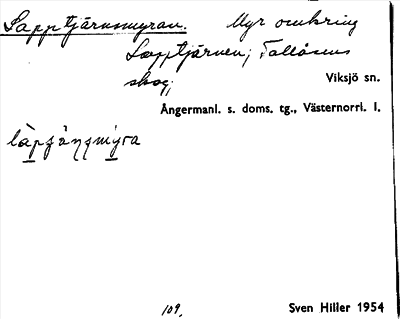 Lapptjärnsmyran. Myr omkring
Lapptjärnen; Tallåsens
skog;
Viksjö sn.
Ångermanl. s. doms. tg., Västernorrl. l.
109.
Sven Hiller 1954